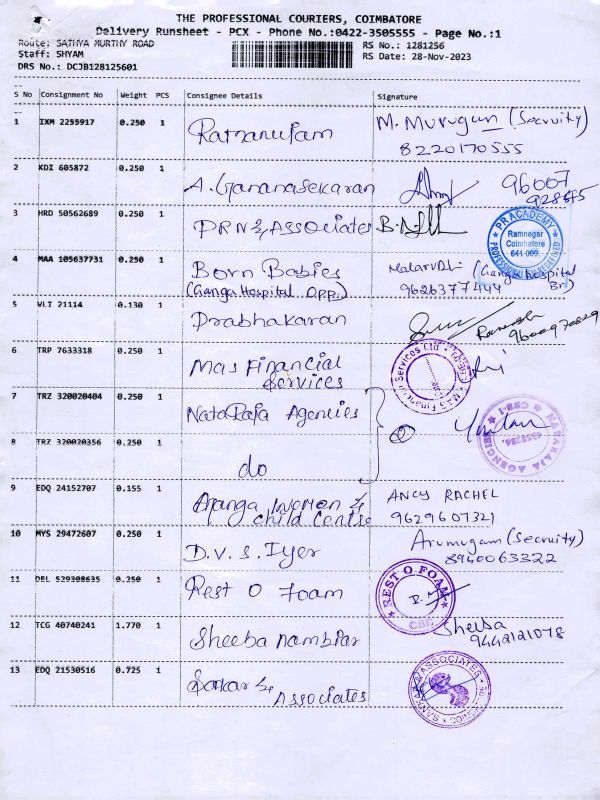 THE PROFESSIONAL COURIERS, COIMBATORE
Delivery Runsheet - PCX - Phone No.:0422-3505555 - Page No.:1
Route: SATHYA MURTHY ROAD
RS No.: 1281256
Staff: SHYAM
RS Date: 28-Nov-2023
DRS No.: DCJB128125601
S No Consignment No Weight PCS Consignee Details Signature
1 IXM 2255917 0.250 1 M. Murugan (Secruity)
8220170555
2 KDI 605872 0.250 1 A. Gananasekaran 96007
928645
3 HRD 50562689 0.250 1 PRN & Associates
PR ACADEMY
Ramnagar
Coimbatore
641 009.
4 MAA 105637731 0.250 1 Born Babies Malarvili (Ganga Hospital
(Ganga Hospital Opp) 9626377444
5 VLT 21114 0.130 1 Prabhakaran Ramesh
6 TRP 7633318 0.250 1 Mas Financial
Services
MAS Financial Services Ltd
7 TRZ 320020404 0.250 1 Nataraja Agencies
NATARAJA AGENCIES
8 TRZ 320020356 0.250 do
9 EDQ 24152707 0.155 1 Women & ANCY RACHEL
Child Centre 9629607321
10 MYS 29472607 0.250 1 D.V.S. Iyer Arumugam (Secruity)
8940063322
11 DEL 529308635 0.250 1 Rest O Foam
REST O FOAM
CBE
12 TCG 40740241 1.770 1 Sheeba nambiar Sheeba
9442121078
13 EDQ 21530516 0.725 1 Sankar &
Associates